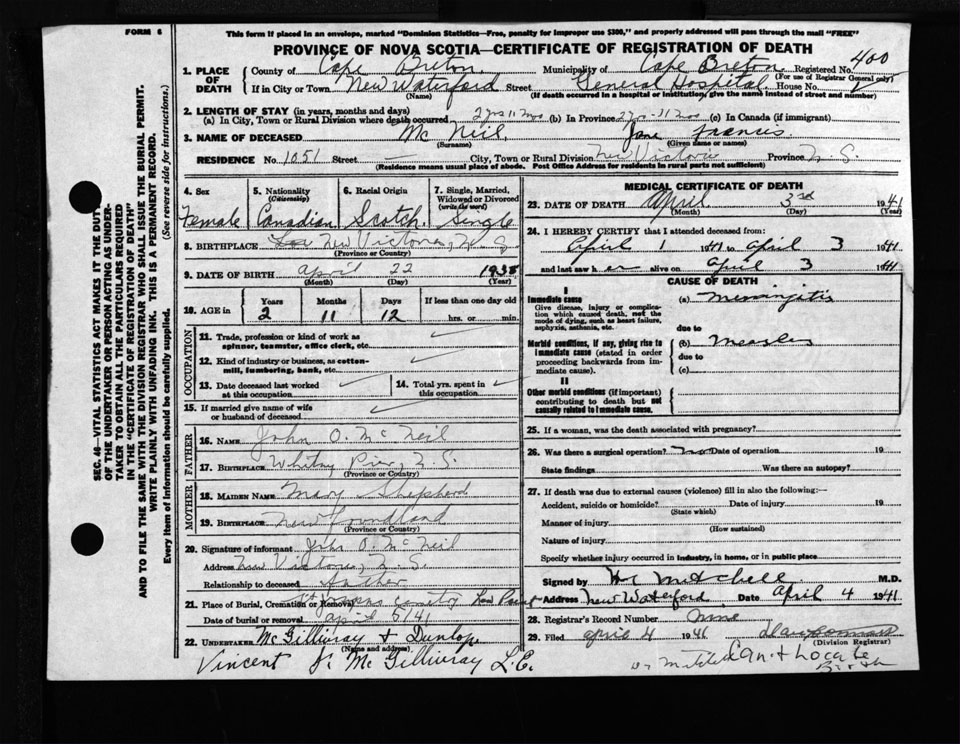 FORM 6
This form if placed in an envelope, marked "Dominion Statistics—Free, penalty for improper use $300," and properly addressed will pass through the mail "FREE"
PROVINCE OF NOVA SCOTIA—CERTIFICATE OF REGISTRATION OF DEATH
SEC. 46—VITAL STATISTICS ACT MAKES IT THE DUTY
OF THE UNDERTAKER OR PERSON ACTING AS UNDER-
TAKER TO OBTAIN ALL THE PARTICULARS REQUIRED
IN THE "CERTIFICATE OF REGISTRATION OF DEATH"
AND TO FILE THE SAME WITH THE DIVISION REGISTRAR WHO SHALL ISSUE THE BURIAL PERMIT.
WRITE PLAINLY WITH UNFADING INK. THIS IS A PERMANENT RECORD.
Every item of Information should be carefully supplied. (See reverse side for instructions.)
1. PLACE OF DEATH County of Cape Breton Municipality of Cape Breton Registered No. 400
(For use of Registrar General only)
If in City or Town New Waterford Street General Hospital House No.
(Name) (If death occurred in a hospital or institution, give the name instead of street and number)
2. LENGTH OF STAY (in years, months and days)
(a) In City, Town or Rural Division where death occurred 2 yrs 11 mos (b) In Province 2 yrs-11 mos (c) In Canada (if immigrant)
3. NAME OF DECEASED Mc Neil Jane Francis
(Surname) (Given name or names)
RESIDENCE No. 1051 Street — City, Town or Rural Division New Victoria Province N. S.
(Residence means usual place of abode. Post Office Address for residents in rural parts not sufficient)
4. Sex 5. Nationality (Citizenship) 6. Racial Origin 7. Single, Married, Widowed or Divorced (write the word)
Female Canadian Scotch Single
8. BIRTHPLACE New Victoria, N. S.
(Province or Country)
9. DATE OF BIRTH April 22 1938
(Month) (Day) (Year)
10. AGE in Years Months Days If less than one day old
2 11 12 hrs. or min.
OCCUPATION
11. Trade, profession or kind of work as spinner, teamster, office clerk, etc.
12. Kind of industry or business, as cotton-mill, lumbering, bank, etc.
13. Date deceased last worked at this occupation 14. Total yrs. spent in this occupation
15. If married give name of wife or husband of deceased
FATHER
16. NAME John O. Mc Neil
17. BIRTHPLACE Whitney Pier, N.S.
(Province or Country)
MOTHER
18. MAIDEN NAME Mary Shepherd
19. BIRTHPLACE New Foundland
(Province or Country)
20. Signature of informant John O. Mc Neil
Address New Victoria, N. S.
Relationship to deceased father
21. Place of Burial, Cremation or Removal
Date of burial or removal April 5/41
22. UNDERTAKER McGillivray & Dunlop
(Name and address)
Vincent J. McGillivray L.E.
MEDICAL CERTIFICATE OF DEATH
23. DATE OF DEATH April 3rd 1941
(Month) (Day) (Year)
24. I HEREBY CERTIFY that I attended deceased from:
April 1 1941 to April 3 1941
and last saw h er alive on April 3 1941
CAUSE OF DEATH
I
Immediate cause (a) Meningitis
Give disease, injury or complication which caused death, not the mode of dying, such as heart failure, asphyxia, asthenia, etc.
due to
Morbid conditions, if any, giving rise to immediate cause (stated in order proceeding backwards from immediate cause). (b) Measles
due to
(c)
II
Other morbid conditions (if important) contributing to death but not causally related to immediate cause.
25. If a woman, was the death associated with pregnancy?
26. Was there a surgical operation? no Date of operation 19
State findings Was there an autopsy?
27. If death was due to external causes (violence) fill in also the following:—
Accident, suicide or homicide? Date of injury 19
(State which)
Manner of injury
(How sustained)
Nature of injury
Specify whether injury occurred in industry, in home, or in public place
Signed by Mitchell M.D.
Address New Waterford Date April 4 1941
28. Registrar's Record Number
29. Filed April 4 1941
(Division Registrar)
Can't Locate
Birth